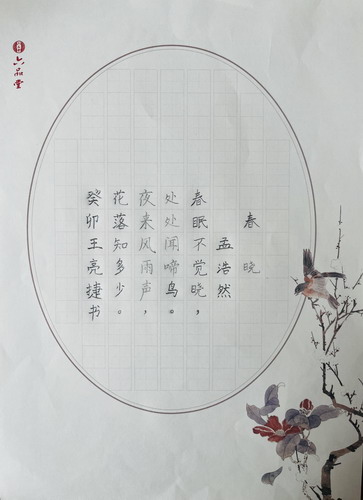 六品堂
春晓
孟浩然
春眠不觉晓，
处处闻啼鸟。
夜来风雨声，
花落知多少。
癸卯王亮捷书